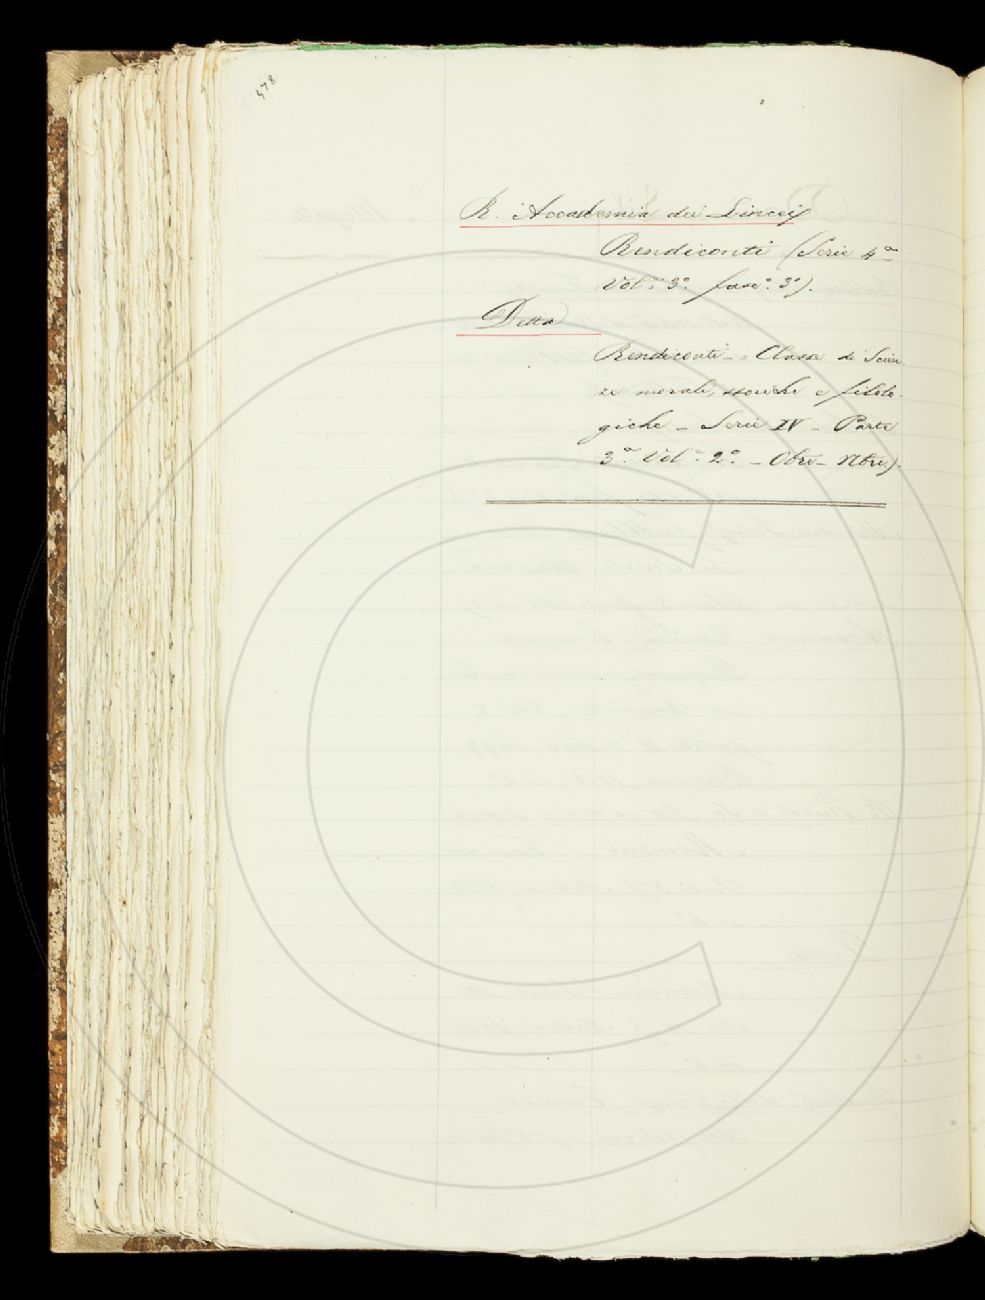 478
R. Accademia dei Lincei
Rendiconti (Serie 4ª
Vol.º 3º fasc.º 3º).
Detta
Rendiconti - = Classe di Scien
ze morali, storiche e filolo-
giche - Serie IV - Parte
3ª Vol.º 2º. - Obre - Nbre).